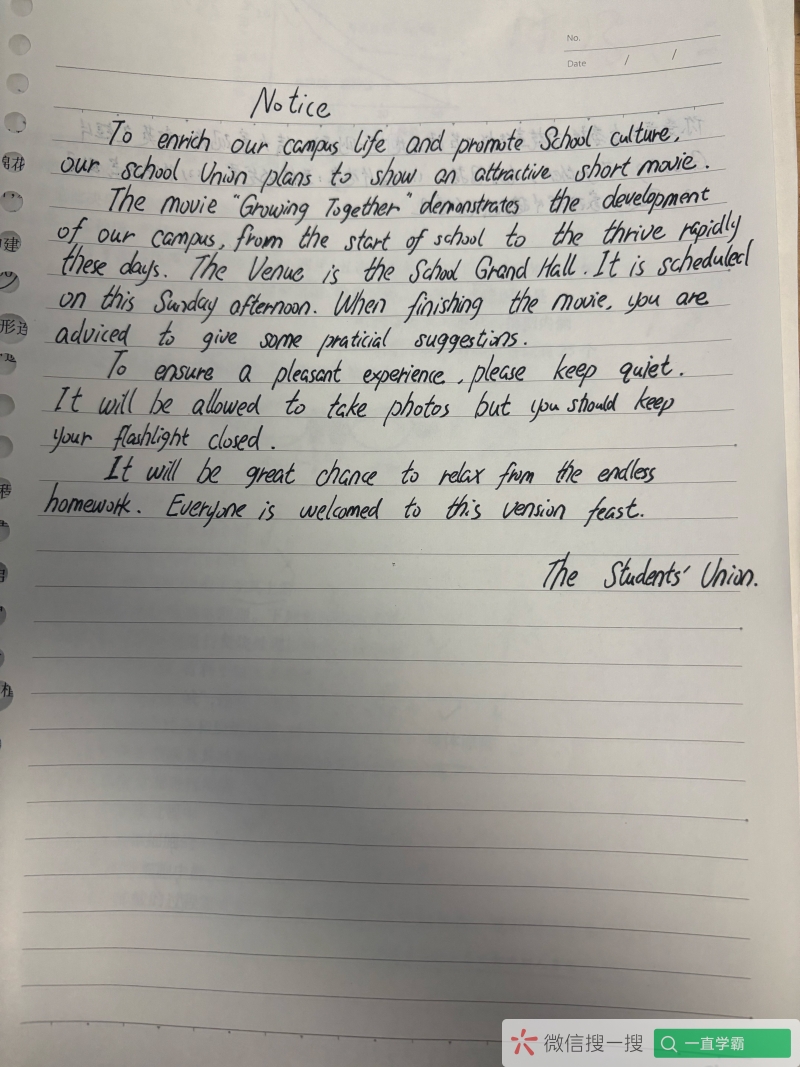 No.
Date / /
Notice
To enrich our campus life and promote School culture,
our school Union plans to show an attractive short movie.
The movie "Growing Together" demonstrates the development
of our campus, from the start of school to the thrive rapidly
these days. The Venue is the School Grand Hall. It is scheduled
on this Sunday afternoon. When finishing the movie, you are
adviced to give some praticial suggestions.
To ensure a pleasant experience, please keep quiet.
It will be allowed to take photos but you should keep
your flashlight closed.
It will be great chance to relax from the endless
homework. Everyone is welcomed to this vension feast.
The Students' Union.
微信搜一搜
一直学霸